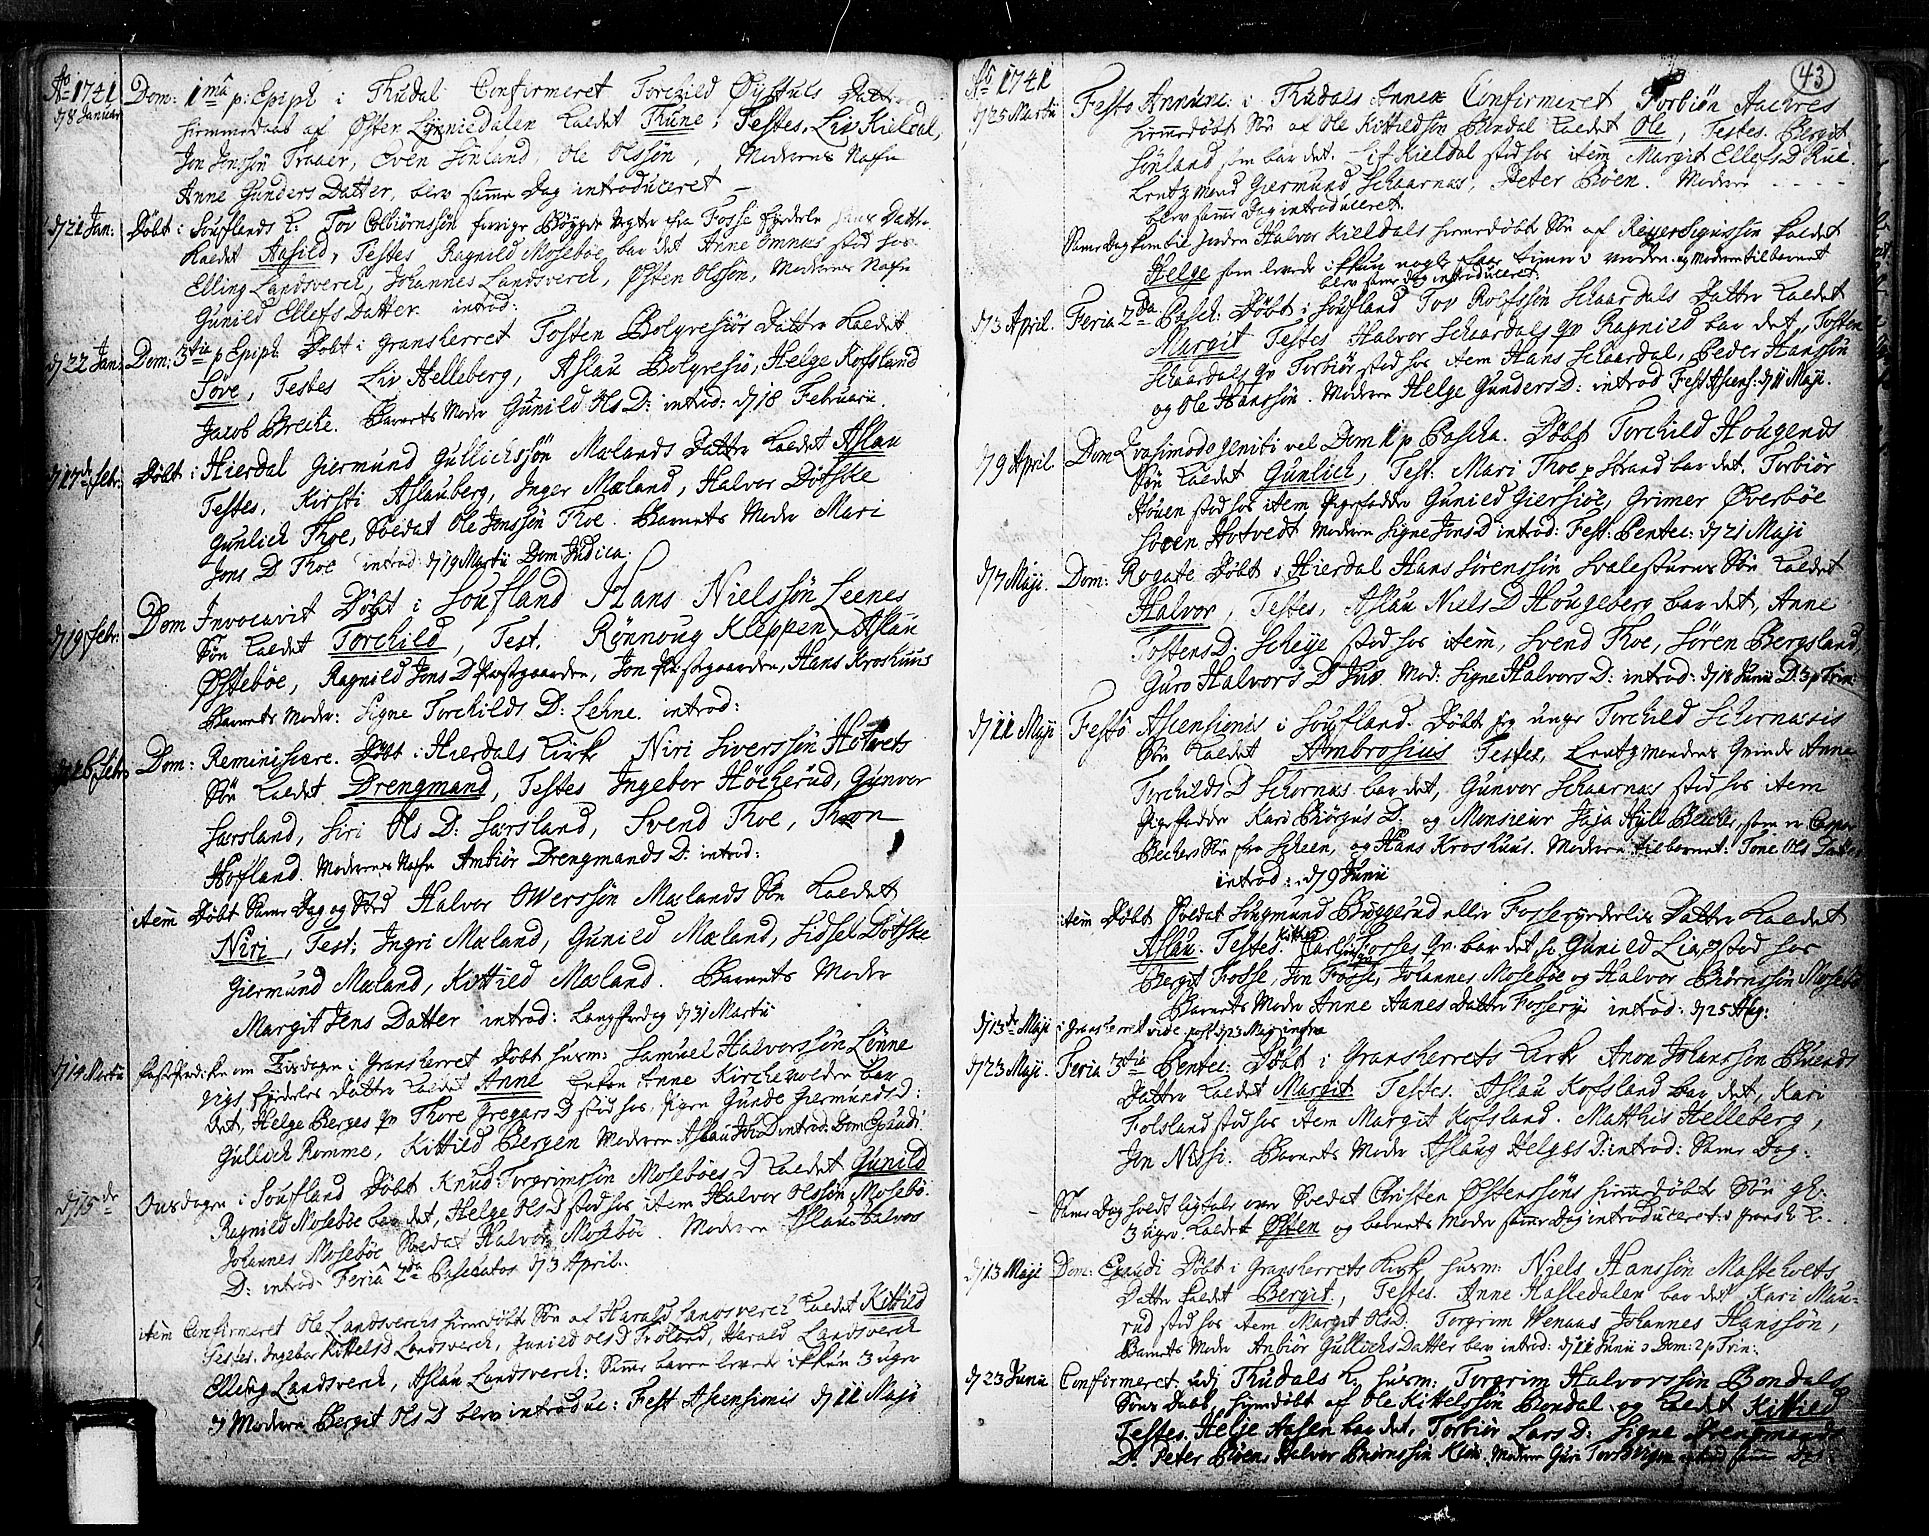 Ao 1741
d. 8 Januar
Dom: 1ma p: Epiph i Thudal Confirmeret Torchild Øystuls Datter
hiemmedaab af Øster Lynniedalen kaldet Thune, Testes, Liv Kieldal,
Jon Jonssøn Traaer, Even Sønland, Ole Olssøn, Moderens Nafn
Anne Gunders Datter, blev samme Dag introduceret
d/21 Jan: Døbt i Souflands K: Tov Colbiørnssøn forrige Bøygge Vegter fra Fosse Eyderle hans Datter
kaldet Aasild, Testes Ragnild Mosebøe bar det Anne Omnæs stod hos
Elling Landsverch, Johannes Landsverch, Østen Olssøn, Moderens Nafn
Gunild Ellefs Datter introd:
d/22 Jan: Dom: 3tia p Epiph Døbt i Gransherret Tosten Bolgresiøs Datter kaldet
Tøve, Testes Liv Helleberg, Aslau Bolgresiø, Helge Kofsland
Jacob Breche. Barnets Moder Gunild Ols D: introd: d/18 Februarii.
Febr: Døbt i Hierdal Giermund Gullichssøn Mælands Datter kaldet Aslau
Testes, Kirsti Aslauberg, Inger Mæland, Halvor Døtske
Gunlich Thoe, Soldat Ole Jonssøn Thoe. Barnets Moder Mari
Jons D Thoe introd: d/19 Martii Dom: Judica.
d/19 Febr: Dom Invocavit Døbt i Soufland Hans Nielssøn Leenes
Søn kaldet Torchild, Test. Rønnoug Kleppen, Aslau
Østebøe, Ragnild Jons D Præstgaarden, Jon Præstegaarden, Hans Kroshuus
Barnets Moder: Signe Torchilds D: Lehne. introd:
d/26 Febr: Dom: Reminiscere. Døbt i Hierdals Kirk Niri Siverssøn Hotvets
Søn kaldet Drengmand, Testes Ingebor Høcherud, Gunvor
Særsland, Siri Ols D: Særsland, Svend Thoe, Thron
Hofland. Moderens Nafn Ambiør Drengmands D: introd:
item Døbt Samme Dag og Sted Halvor Owerssøn Mælands Søn kaldet
Niri, Test: Ingri Mæland, Gunild Mæland, Sidsel Døtske
Giermund Mæland, Kittild Mæland. Barnets Moder
Margit Jens Datter introd: Langfredag d/31 Martii
d/14 Martii om Tirsdagen i Gransherret Døbt husm: Samuel Halvorssøn Lønne
vigs Eyderles Datter kaldet Anne Enken Anne Kircheuolden bar
det, Helge Berges qv Thore Gregars D stod hos, Pigen Gunde Giermunds D:
Gullich Romme, Kittild Bergen Moderen Aslau introd: Dom Exaudi
d/15de Onsdagen i Soufland Døbt Knud Torgrimssøn Mosebøes D kaldet Gunild
Ragnild Mosebøe bar det, Helge Ols D stod hos item Halvor Olssøn Mosebø.
Johannes Mosebøe Soldat Halvor Mosebøe. Moderen Aslau Halvors
D: introd: Feria 2da Paschatos d/3 April.
item Confirmeret Ole Landsverchs hiemedøbt Søn af Harald Landsverch kaldet Kittild
Testes. Ingebor Kittels D Landsverch, Gunild Ols D Frøland, Harald Landsverch
Elling Landsverch, Aslau Landsverch: Samme barn levede ikkun 3 uger
Moderen Bergit Ols D blev introduc: Fest Ascensionis d/11 Maji
43
Ao 1741
d/25 Martii Festo Annunc: i Thudals Annex Confirmeret Torbiøn Aachres
hiemedøbt Søn af Ole Kittildsøn Bondal kaldet Ole, Testes. Bergit
Sønland, som bar det. Lif Kieldal stod hos item Margit Ellefs D Rue.
Lentzmand Giermund Schaarnæs, Peter Bøen. Moderen - - - -
blev samme Dag introduceret.
Samme Dag kom til Jorden Halvor Kieldals hiemedøbt Søn af Reiersignssøn kaldet
Helge som levede ikkun nogle faae timer i verden. og Moderen til barnet
blev samme dag introduceret:
d/3 April. Feria 2da Pasch: Døbt i Soufland Tov Rolfssøn Schaardals Datter kaldet
Margit Testes Halvor Schaardals qv Ragnild bar det, Tosten
Schaardals qv Torbiør stod hos item Hans Schaardal, Peder Hanssøn
og Ole Hanssøn. Moderen Helge Gunders D: introd Fest Ascens: d/11 Maji.
d/9 April Dom Qvasimodogeniti vel Dom 1 p Pascha. Døbt Torchild Hougends
Søn kaldet Gunlich, Test: Mari Thoe p Strand bar det. Torbiør
Houen stod hos item Pigefadder Gunild Giersiøe, Grimer Øverbøe
Soren Hotvedt Moderen Signe Jons D introd: Fest: Pentec: d/21 Maji
d/7 Maji. Dom: Rogate Døbt i Hierdal Hans Sørenssøn Svalesturens Søn kaldet
Halvor, Testes, Aslau Niels D Hougeberg bar det, Anne
Tostens D: Scheye stod hos item, Svend Thoe, Søren Bergsland
Guro Halvors D Juv. Mod: Signe Halvors D: introd: d/18 Junii D: 3 p Trin:
d/11 Maji Festo Ascensionis i Soufland. Døbt unge Torchild Schornæsis
Søn kaldet Ambrosius Testes, Lentzmandens Qvinde Anne
Torchilds D Schornæs bar det, Gunvor Schaarnæs stod hos item
Pigefadder Kari Børgus D: og Monsieur Jaja Hyll Blecher, som er
Bechers Søn fra Scheen, og Hans Kroshuus. Moderen til barnet: Tone Ols Datter
introd: d/9 Junii
item Døbt Soldat Songmund Bøggerud eller Fosseryderlis Datter kaldet
Aslau. Testes. Kittil Fosses qv. bar det, Gunild Lia, stod hos
Bergit Fosse, Jon Fosse, Johannes Mosebøe og Halvor Børnssøn Mosebø
Barnets Moder Anne Aanes Datter Fosserye introd: d/25 Aug:
d/13de Maji i Gransherret vide post d/23 Maji infra
d/23 Maji. Feria 3tia Pentec: Døbt i Gransherrets Kirk Anon Johanssøn Buends
Datter kaldet Margit Testes. Aslau Kofsland bar det, Kari
Folsland stod hos item Margit Kofsland. Matthis Helleberg,
Jon Nissi. Barnets Moder Aslaug Helges D: introd: Samme Dag.
Samme Dag holdt ligtale over Soldat Christen Østenssøns hiemedøbt Søn gl:
3 uger. kaldet Østen og barnets Moder samme Dag introduceret i Gransh K.
d/13 Maji Dom: Exaudi Døbt i Gransherrets Kirk husm: Niels Hanssøn Masteholts
Datter kaldet Bergit, Testes. Anne Hasledalen bar det Kari Mau-
rud stod hos item Margit Ols D. Torgrim Wenaas Johannes Hanssøn,
Barnets Moder Anbiør Gullichs Datter blev introd: d/11 Junii Dom: 2 p Trin:
d/23 Junii. Confirmeret udj Thudals K, husm: Torgrim Halvorssøn Bondals
Søns Daab, hiemdøbt af Ole Kittelssøn Bondal og kaldet Kittild
Testes. Helje Aasen bar det, Torbiør Lars D: Signe Drengmands
D. Peter Bøens Halvor Biørnssøn Moderen Guri introd samme Dag.